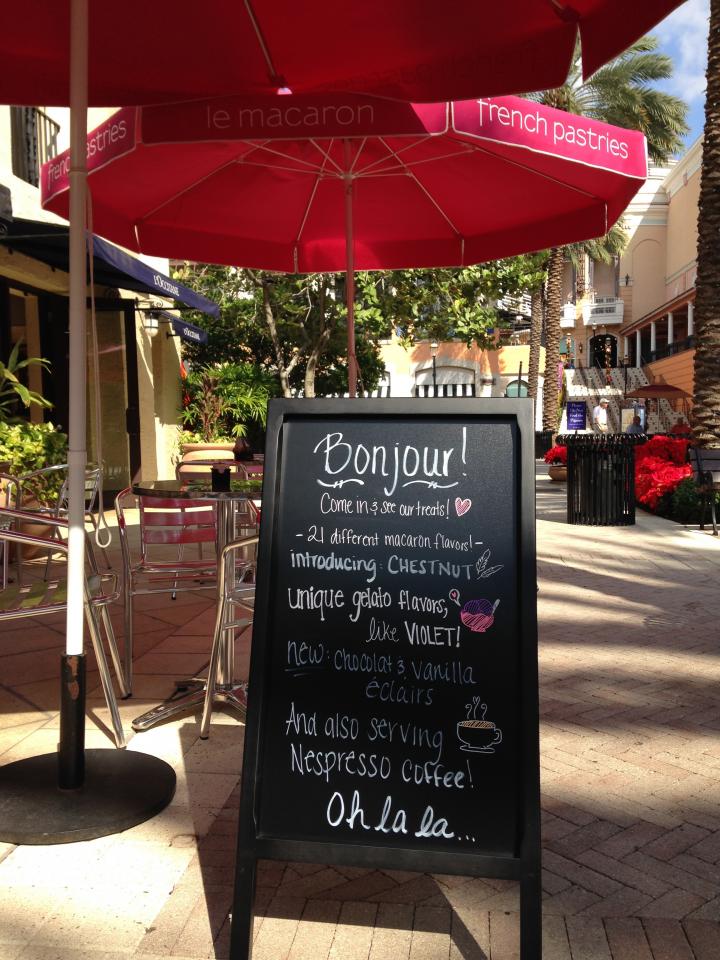 le macaron
french pastries
french pastries
L'OCCITANE
Bonjour!
Come in & see our treats!
- 21 different macaron flavors! -
introducing: CHESTNUT
unique gelato flavors,
like VIOLET!
new: chocolat & vanilla
éclairs
And also serving
Nespresso coffee!
Oh la la...